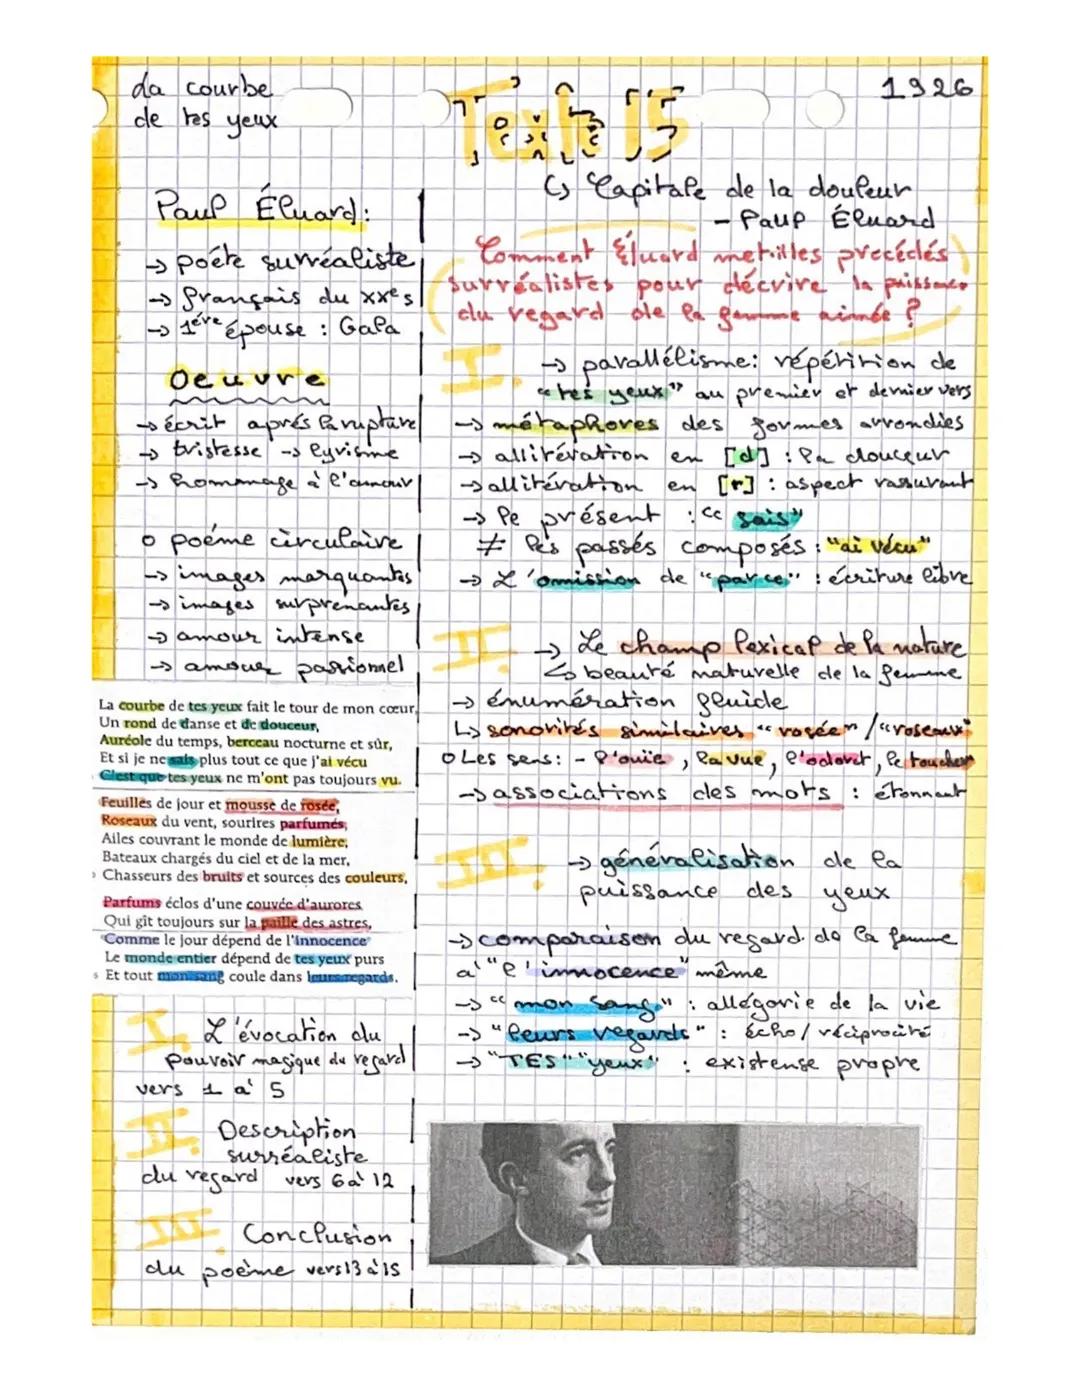 La courbe
de tes yeux
Texte 15
1926
↳ Capitale de la douleur
- Paul Éluard
Paul Éluard:
→ poéte surréaliste
→ français du xxe s
→ 1ère épouse : Gala
Oeuvre
→ écrit aprés la rupture
→ tristesse → lyrisme
→ hommage à l'amour
o poéme circulaire
→ images marquantes
→ images surprenantes
→ amour intense
→ amour passionnel
La courbe de tes yeux fait le tour de mon cœur,
Un rond de danse et de douceur,
Auréole du temps, berceau nocturne et sûr,
Et si je ne sais plus tout ce que j'ai vécu
C'est que tes yeux ne m'ont pas toujours vu.
Feuilles de jour et mousse de rosée,
Roseaux du vent, sourires parfumés,
Ailes couvrant le monde de lumière,
Bateaux chargés du ciel et de la mer,
Chasseurs des bruits et sources des couleurs,
Parfums éclos d'une couvée d'aurores
Qui gît toujours sur la paille des astres,
Comme le jour dépend de l'innocence
Le monde entier dépend de tes yeux purs
Et tout mon sang coule dans leurs regards.
I. L'évocation du
pouvoir magique du regard
vers 1 à 5
II. Description
surréaliste
du regard vers 6 à 12
III. Conclusion
du poème vers 13 à 15
Comment Éluard met-illes precédés
surréalistes pour décrire la puissance
du regard de la femme aimée ?
I. → parallélisme: répétition de
"tes yeux" au premier et dernier vers
→ métaphores des formes arrondies
→ allitération en [d] : la douceur
→ allitération en [r] : aspect rassurant
→ le présent : "sais"
≠ les passés composés : "ai vécu"
→ L'omission de "parce" : écriture libre
II. → Le champ lexical de la nature
↳ beauté naturelle de la femme
→ énumération fluide
↳ sonorités similaires "rosée" / "roseaux"
o Les sens: - l'ouïe, la vue, l'odorat, le toucher
→ associations des mots : étonnant
III. → généralisation de la
puissance des yeux
→ comparaison du regard de la femme
à "l'innocence" même
→ "mon sang" : allégorie de la vie
→ "leurs regards" : écho / réciprocité
→ "TES" "yeux" : existense propre